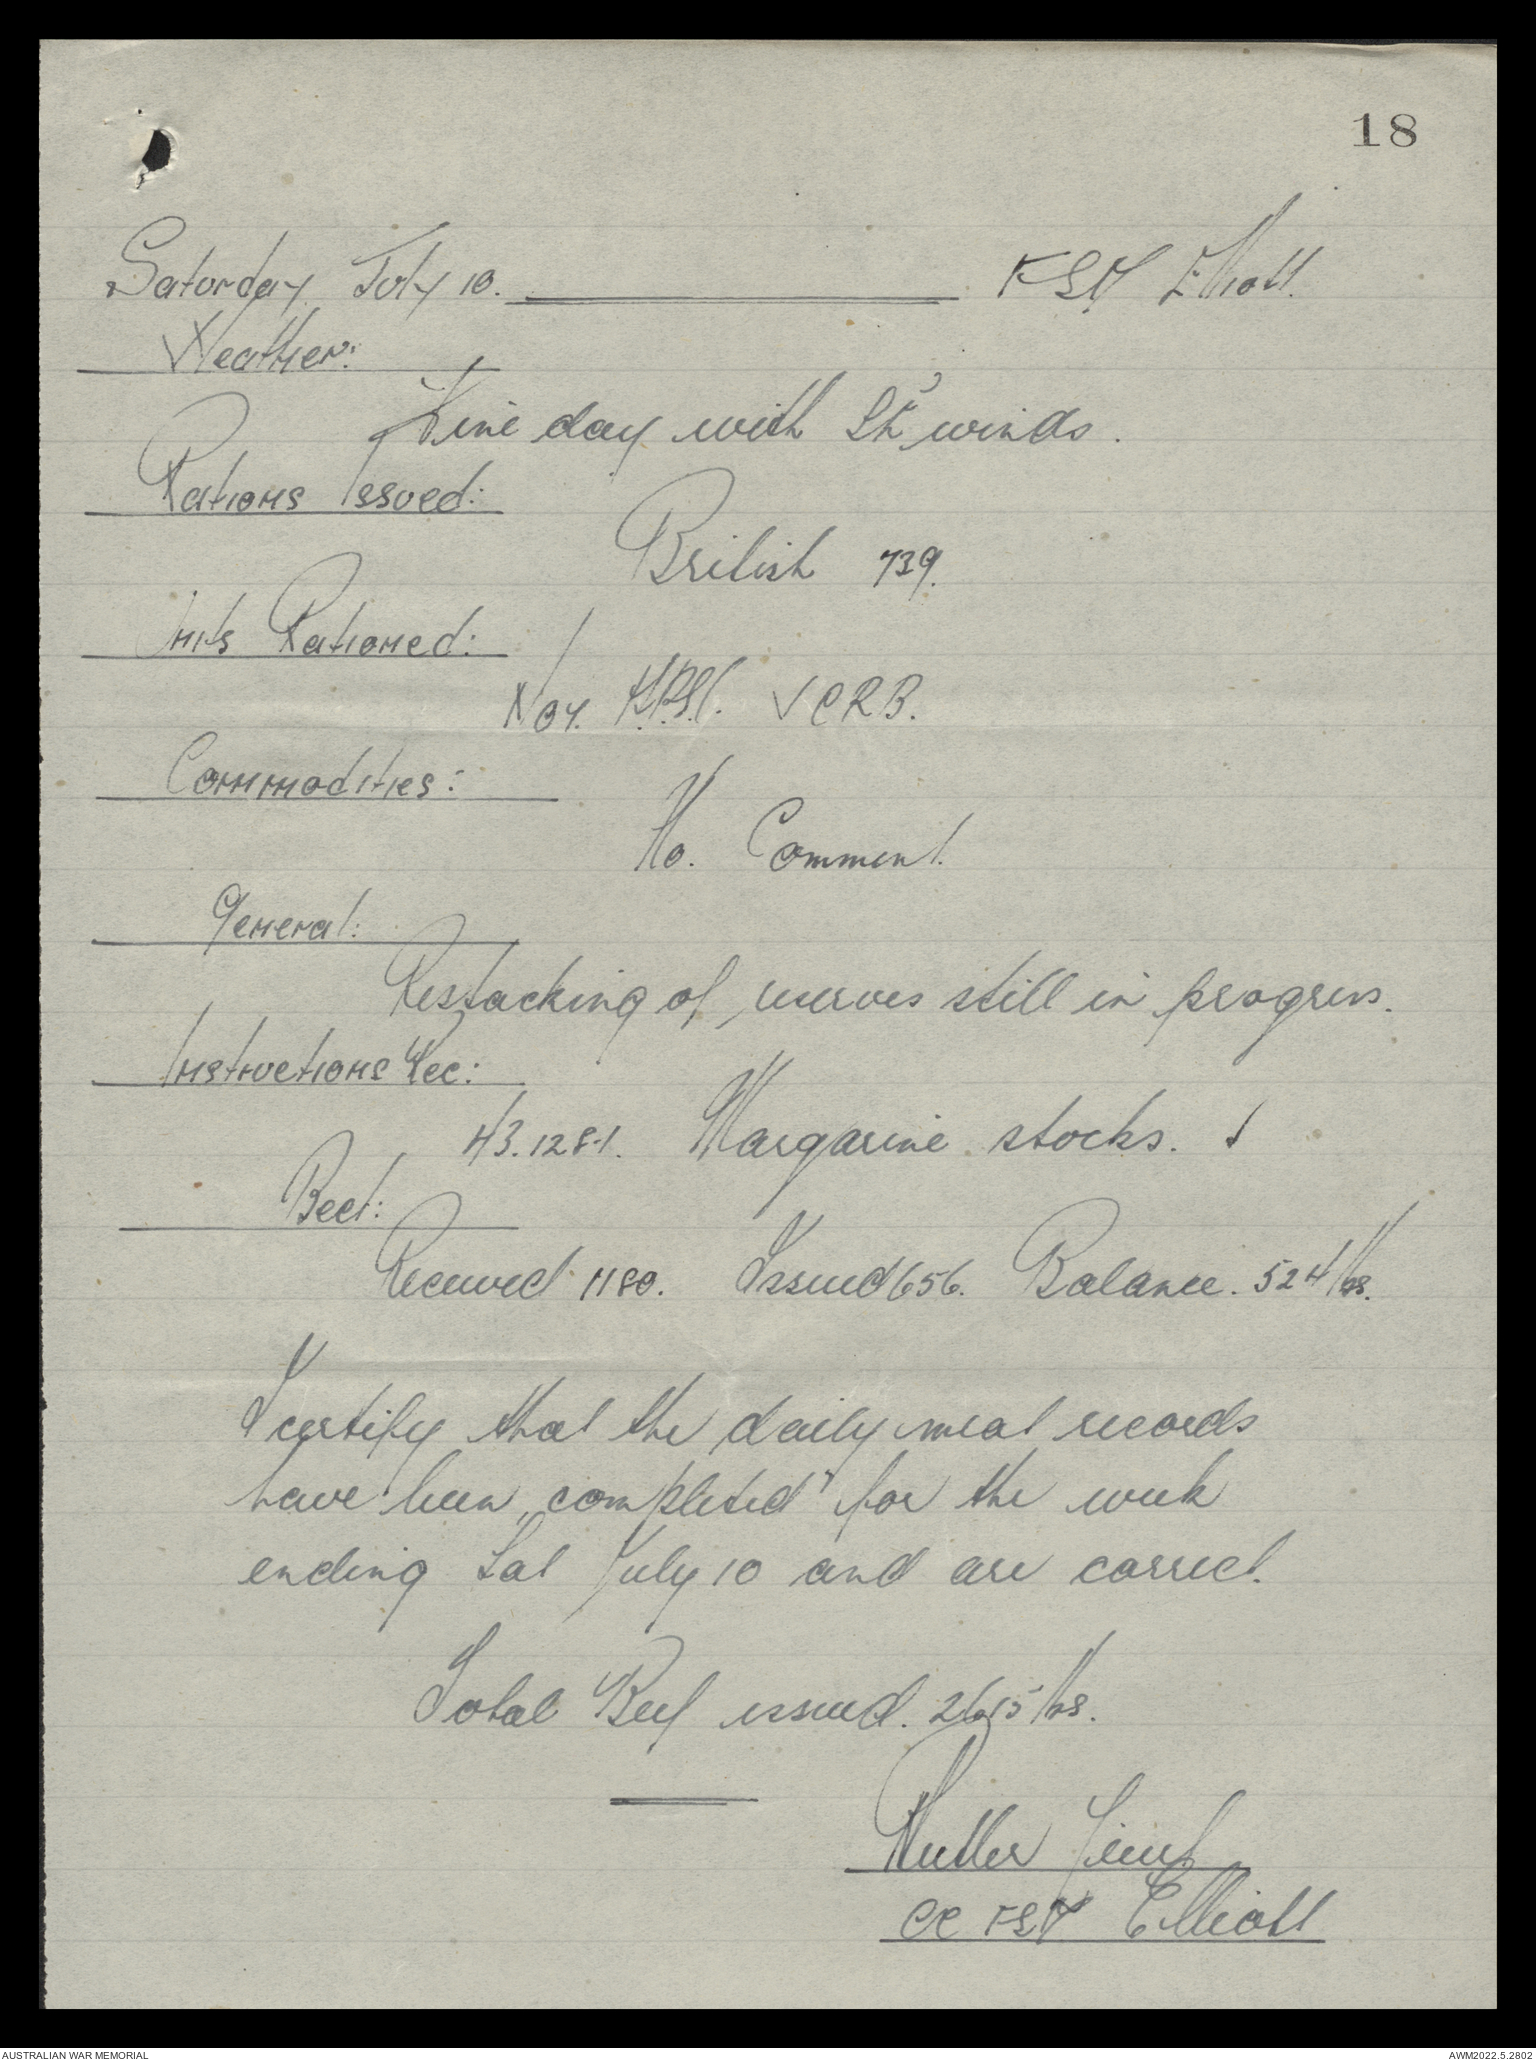 18
Saturday July 10. FSD Elliott.
Weather:
Fine day with winds.
Rations Issued:
British 739.
Units Rationed:
Nov. V CRB.
Commodities:
No. Comment.
General:
Restacking of reserves still in progress.
Instructions Rec:
43.1281. Margarine stocks.
Beef:
Received 1180. Issued 656. Balance. 524 lbs.
I certify that the daily meat records
have been completed for the week
ending Sat July 10 and are correct.
Total Beef issued. 2615 lbs.
Lieut
OC FSD Elliott
AUSTRALIAN WAR MEMORIAL
AWM2022.5.2802